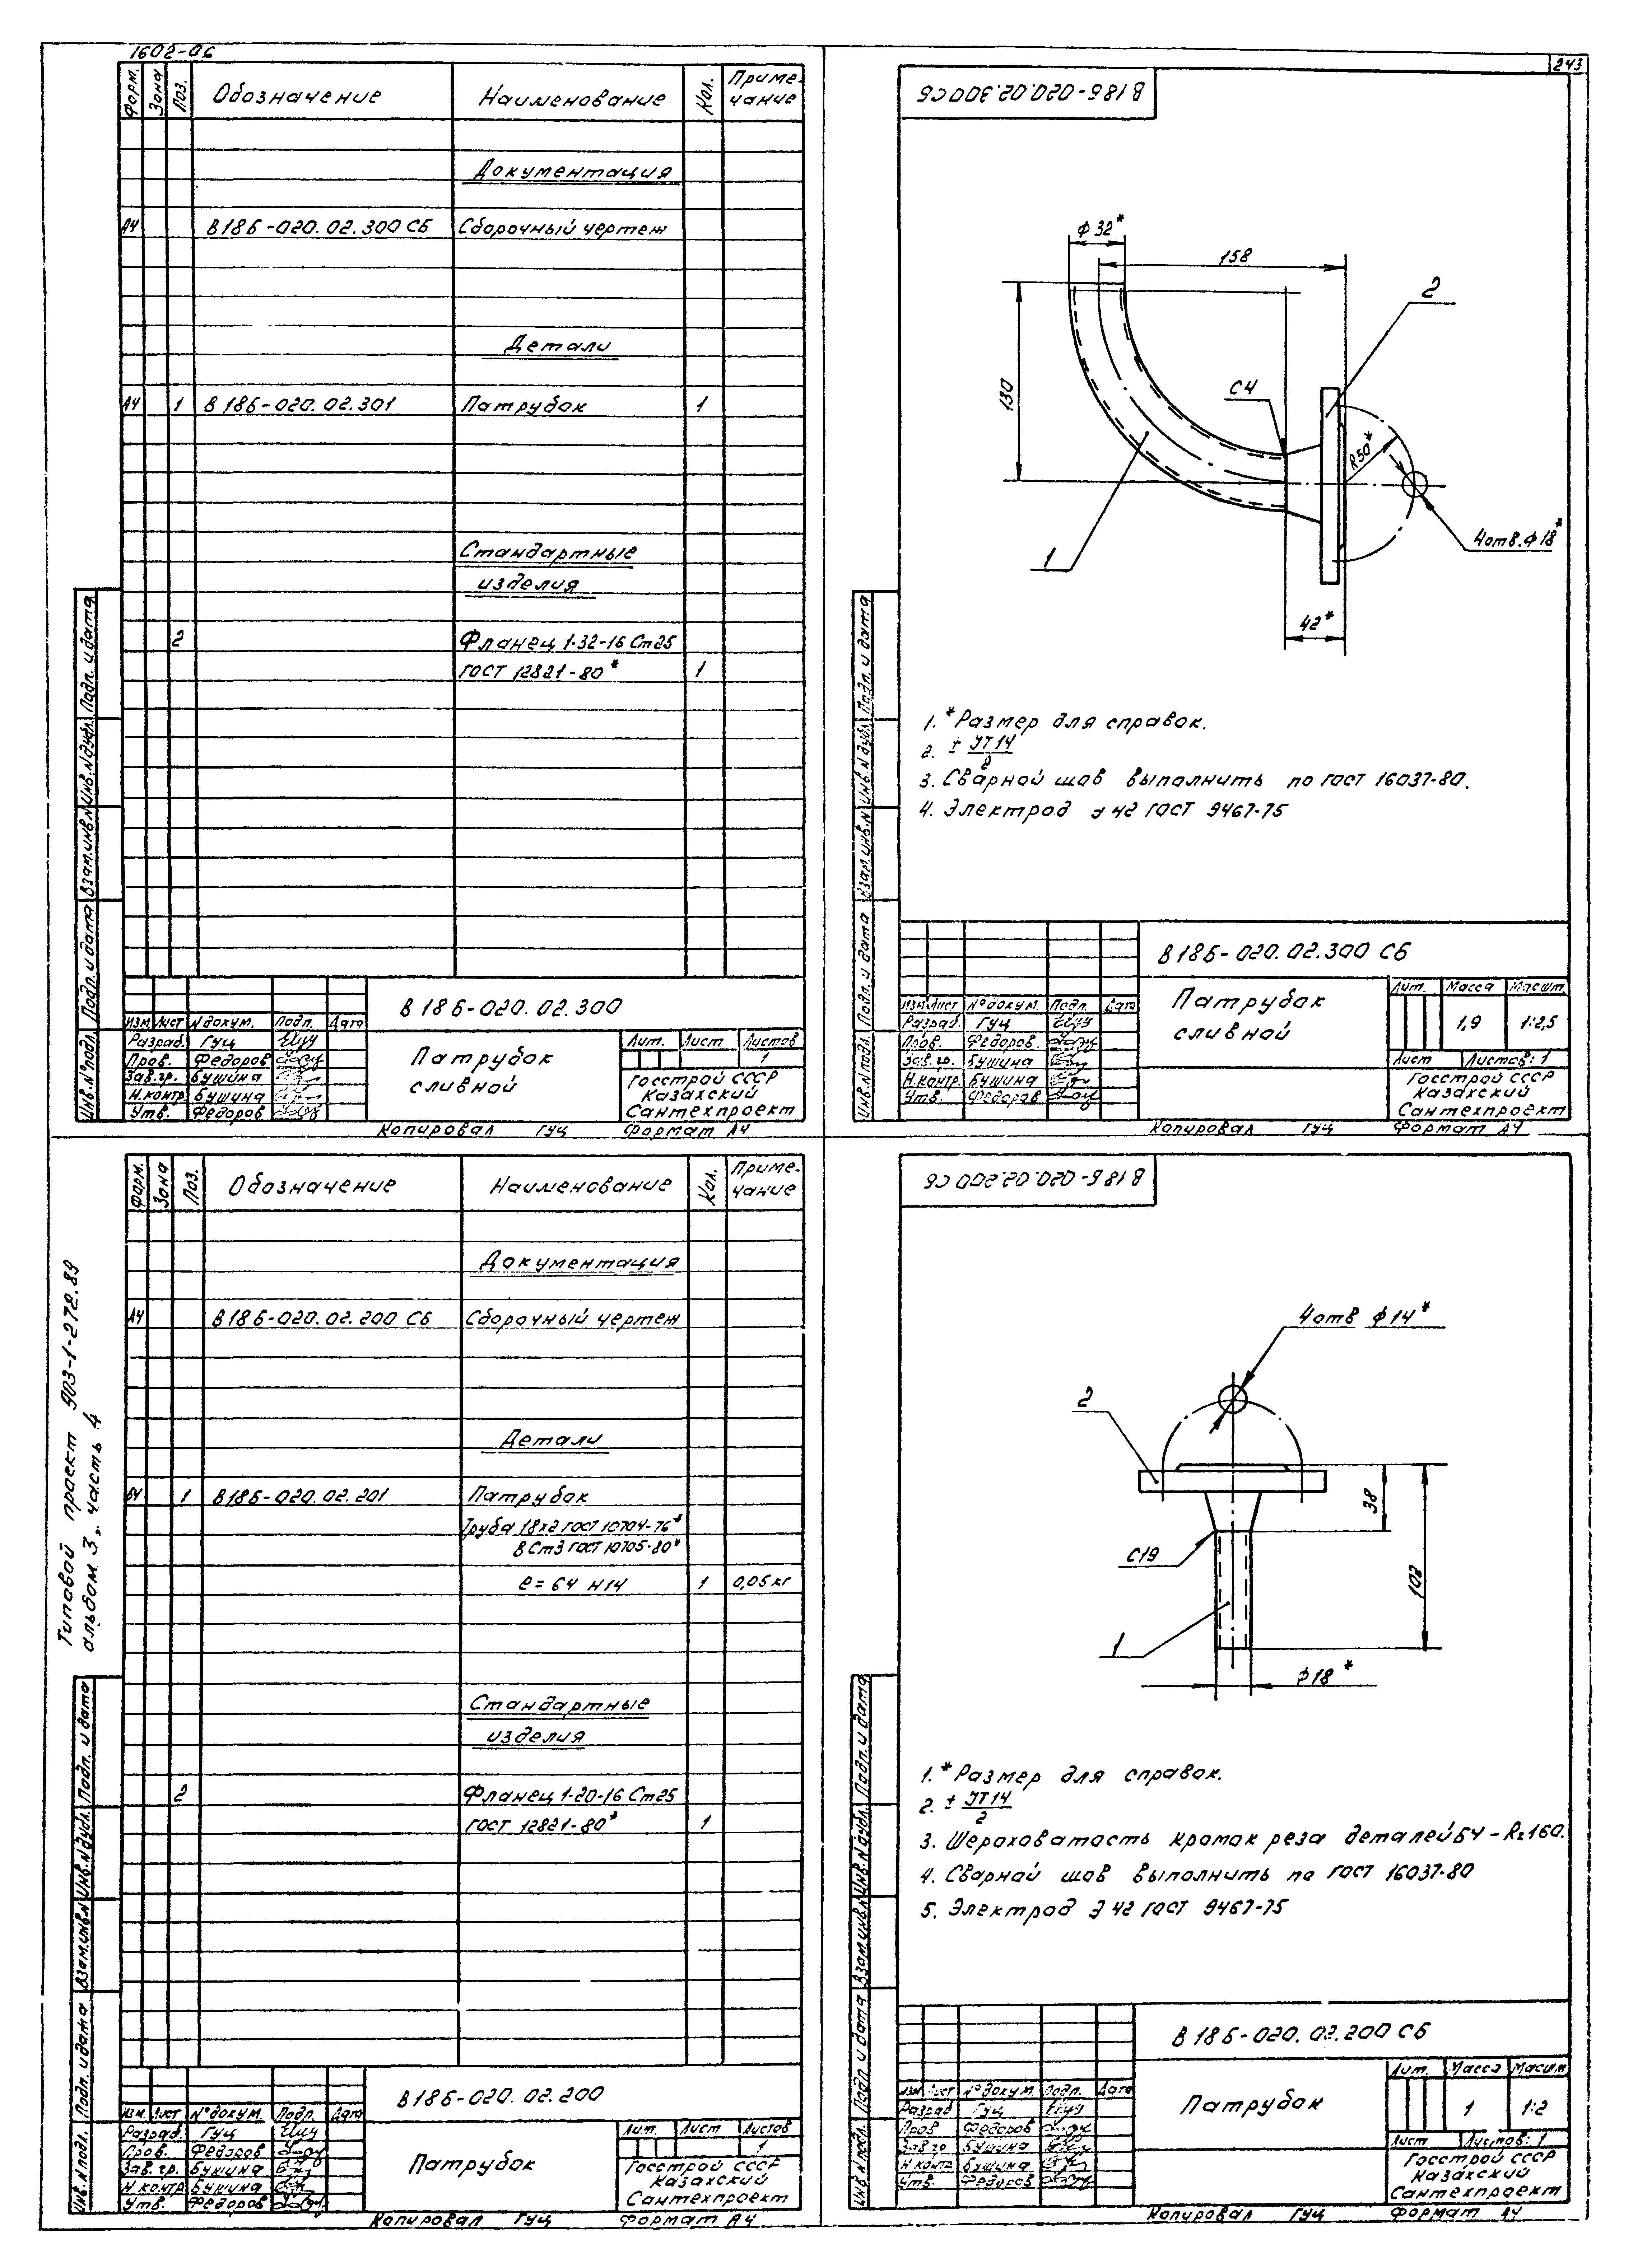 1602-06
243
Форм.
Зона
Поз.
Обозначение
Наименование
Кол.
Приме-
чание
Документация
А4 В 186-020.02.300 СБ Сборочный чертеж
Детали
А4 1 В 186-020.02.301 Патрубок 1
Стандартные
изделия
2 Фланец 1-32-16 Ст25
ГОСТ 12821-80* 1
Инв.№ подл. Подп. и дата Взам.инв.№ Инв.№ дубл. Подп. и дата
В 186-020.02.300
Изм. Лист № докум. Подп. Дата
Разраб. Гуц
Пров. Федоров
Зав.гр. Бушина
Н.контр. Бушина
Утв. Федоров
Патрубок
сливной
Лит. Лист Листов
1
Госстрой СССР
Казахский
Сантехпроект
Копировал Гуц Формат А4
В 186-020.02.300 СБ
ф 32*
158
2
130
С4
R50*
4отв. ф 18*
1
42*
1. *Размер для справок.
2. ± JT14
2
3. Сварной шов выполнить по ГОСТ 16037-80.
4. Электрод Э 42 ГОСТ 9467-75
Инв.№ подл. Подп. и дата Взам.инв.№ Инв.№ дубл. Подп. и дата
В 186-020.02.300 СБ
Изм. Лист № докум. Подп. Дата
Разраб. Гуц
Пров. Федоров
Зав.гр. Бушина
Н.контр. Бушина
Утв. Федоров
Патрубок
сливной
Лит. Масса Масшт.
1,9 1:2,5
Лист Листов: 1
Госстрой СССР
Казахский
Сантехпроект
Копировал Гуц Формат А4
Типовой проект 903-1-272.89
альбом 3, часть 4
Форм.
Зона
Поз.
Обозначение
Наименование
Кол.
Приме-
чание
Документация
А4 В 186-020.02.200 СБ Сборочный чертеж
Детали
БЧ 1 В186-020.02.201 Патрубок
Труба 18×2 ГОСТ 10704-76*
ВСт3 ГОСТ 10705-80*
е = 64 н14 1 0,05 кг
Стандартные
изделия
2 Фланец 1-20-16 Ст25
ГОСТ 12821-80* 1
Инв.№ подл. Подп. и дата Взам.инв.№ Инв.№ дубл. Подп. и дата
В 186-020.02.200
Изм. Лист № докум. Подп. Дата
Разраб. Гуц
Пров. Федоров
Зав.гр. Бушина
Н.контр. Бушина
Утв. Федоров
Патрубок
Лит. Лист Листов
1
Госстрой СССР
Казахский
Сантехпроект
Копировал Гуц Формат А4
В 186-020.02.200 СБ
4отв ф 14*
2
38
С19
102
1
ф 18*
1. *Размер для справок.
2. ± JT14
2
3. Шероховатость кромок реза деталей БЧ - Rz 160.
4. Сварной шов выполнить по ГОСТ 16037-80
5. Электрод Э 42 ГОСТ 9467-75
Инв.№ подл. Подп. и дата Взам.инв.№ Инв.№ дубл. Подп. и дата
В 186-020.02.200 СБ
Изм. Лист № докум. Подп. Дата
Разраб Гуц
Пров Федоров
Зав гр Бушина
Н контр Бушина
Утв. Федоров
Патрубок
Лит. Масса Масшт.
1 1:2
Лист Листов: 1
Госстрой СССР
Казахский
Сантехпроект
Копировал Гуц Формат А4